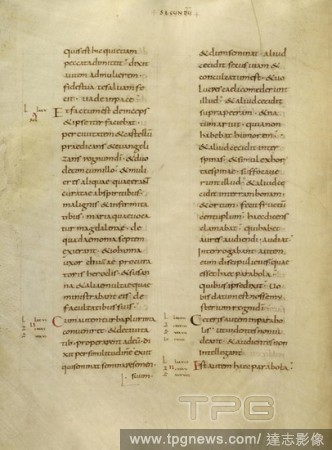 SECUNDU
quis est hic qui etiam
peccata dimittit dixit
autem ad mulierem
fides tua te salvam fe
cit vade in pace
Et factum est deinceps
& ipse iter faciebat
per civitatem & castellũ
praedicans & evangeli
zans regnum di & duo
decim cum illo & muli
eres aliquae quae erant
curatae ab spiritibus
malignis & infirmita
tibus maria quae voca
tur magdalene · de
qua daemonia septem
exierant & iohanna
uxor chuzae procura
toris herodis & susan
na & aliae multae quae
ministrabant eis de
facultatibus suis
Cum autem turba plurima
convenir& & de civita
tib· properarent ad eum · di
xit per similitudinem exiit
qui seminat seminare semen
suum
& dum seminat aliud
cecidit secus viam &
conculcatum est & vo
lucres caeli comederunt
illud & aliud cecidit
supra petram & na
tum aruit quia non
habebat humorem
& aliud cecidit inter
spinas & simul exor
tae spinae suffocave
runt illud & aliud ce
cidit in terram bonam
& ortum fecit fructum
centuplum haec dicens
clamabat qui habet
aures audiendi audiat
Interrogabant autem
eum discipuli eius quae
esset haec parabola
quibus ipse dixit vo
bis datum est nosse mys
terium regni di
Ceteris autem in parabo
lis ut videntes non vi
deant & audientes non
intellegant
Est autem haec parabola·
TPG
www.tpgnews.com/達志影像